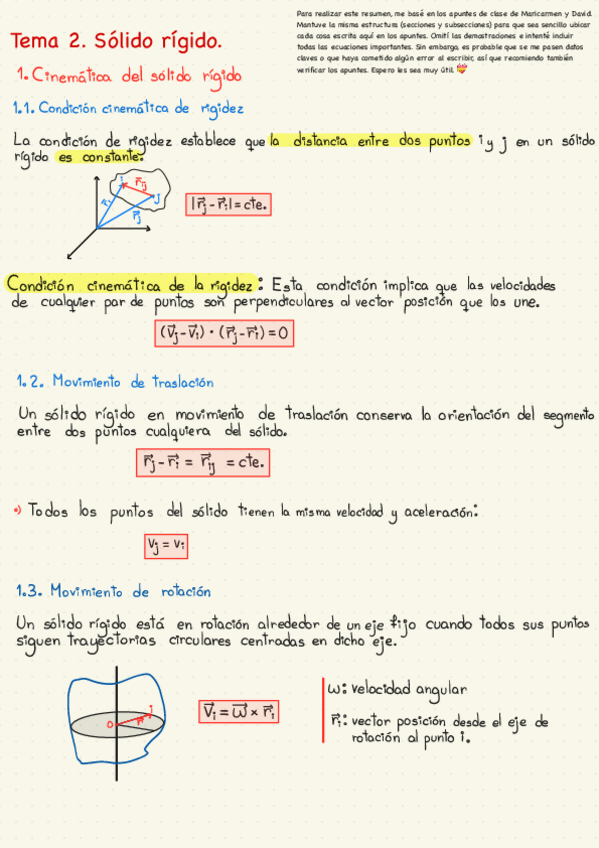 Para realizar este resumen, me basé en los apuntes de clase de Maricarmen y David.
Mantuve la misma estructura (secciones y subsecciones) para que sea sencillo ubicar
cada cosa escrita aquí en los apuntes. Omití las demostraciones e intenté incluir
todas las ecuaciones importantes. Sin embargo, es probable que se me pasen datos
claves o que haya cometido algún error al escribir, así que recomiendo también
verificar los apuntes. Espero les sea muy útil. 💝
Tema 2. Sólido rígido.
1. Cinemática del sólido rígido
1.1. Condición cinemática de rigidez
La condición de rigidez establece que la distancia entre dos puntos i y j en un sólido
rígido es constante:
i r⃗ij j
r⃗i r⃗j
|r⃗j - r⃗i| = cte.
Condición cinemática de la rigidez: Esta condición implica que las velocidades
de cualquier par de puntos son perpendiculares al vector posición que los une.
(v⃗j - v⃗i) · (r⃗j - r⃗i) = 0
1.2. Movimiento de traslación
Un sólido rígido en movimiento de traslación conserva la orientación del segmento
entre dos puntos cualquiera del sólido.
r⃗j - r⃗i = r⃗ij = cte.
•) Todos los puntos del sólido tienen la misma velocidad y aceleración:
vj = vi
1.3. Movimiento de rotación
Un sólido rígido está en rotación alrededor de un eje fijo cuando todos sus puntos
siguen trayectorias circulares centradas en dicho eje.
O i
v⃗i = ω⃗ × r⃗i
ω: velocidad angular
r⃗i: vector posición desde el eje de
rotación al punto i.